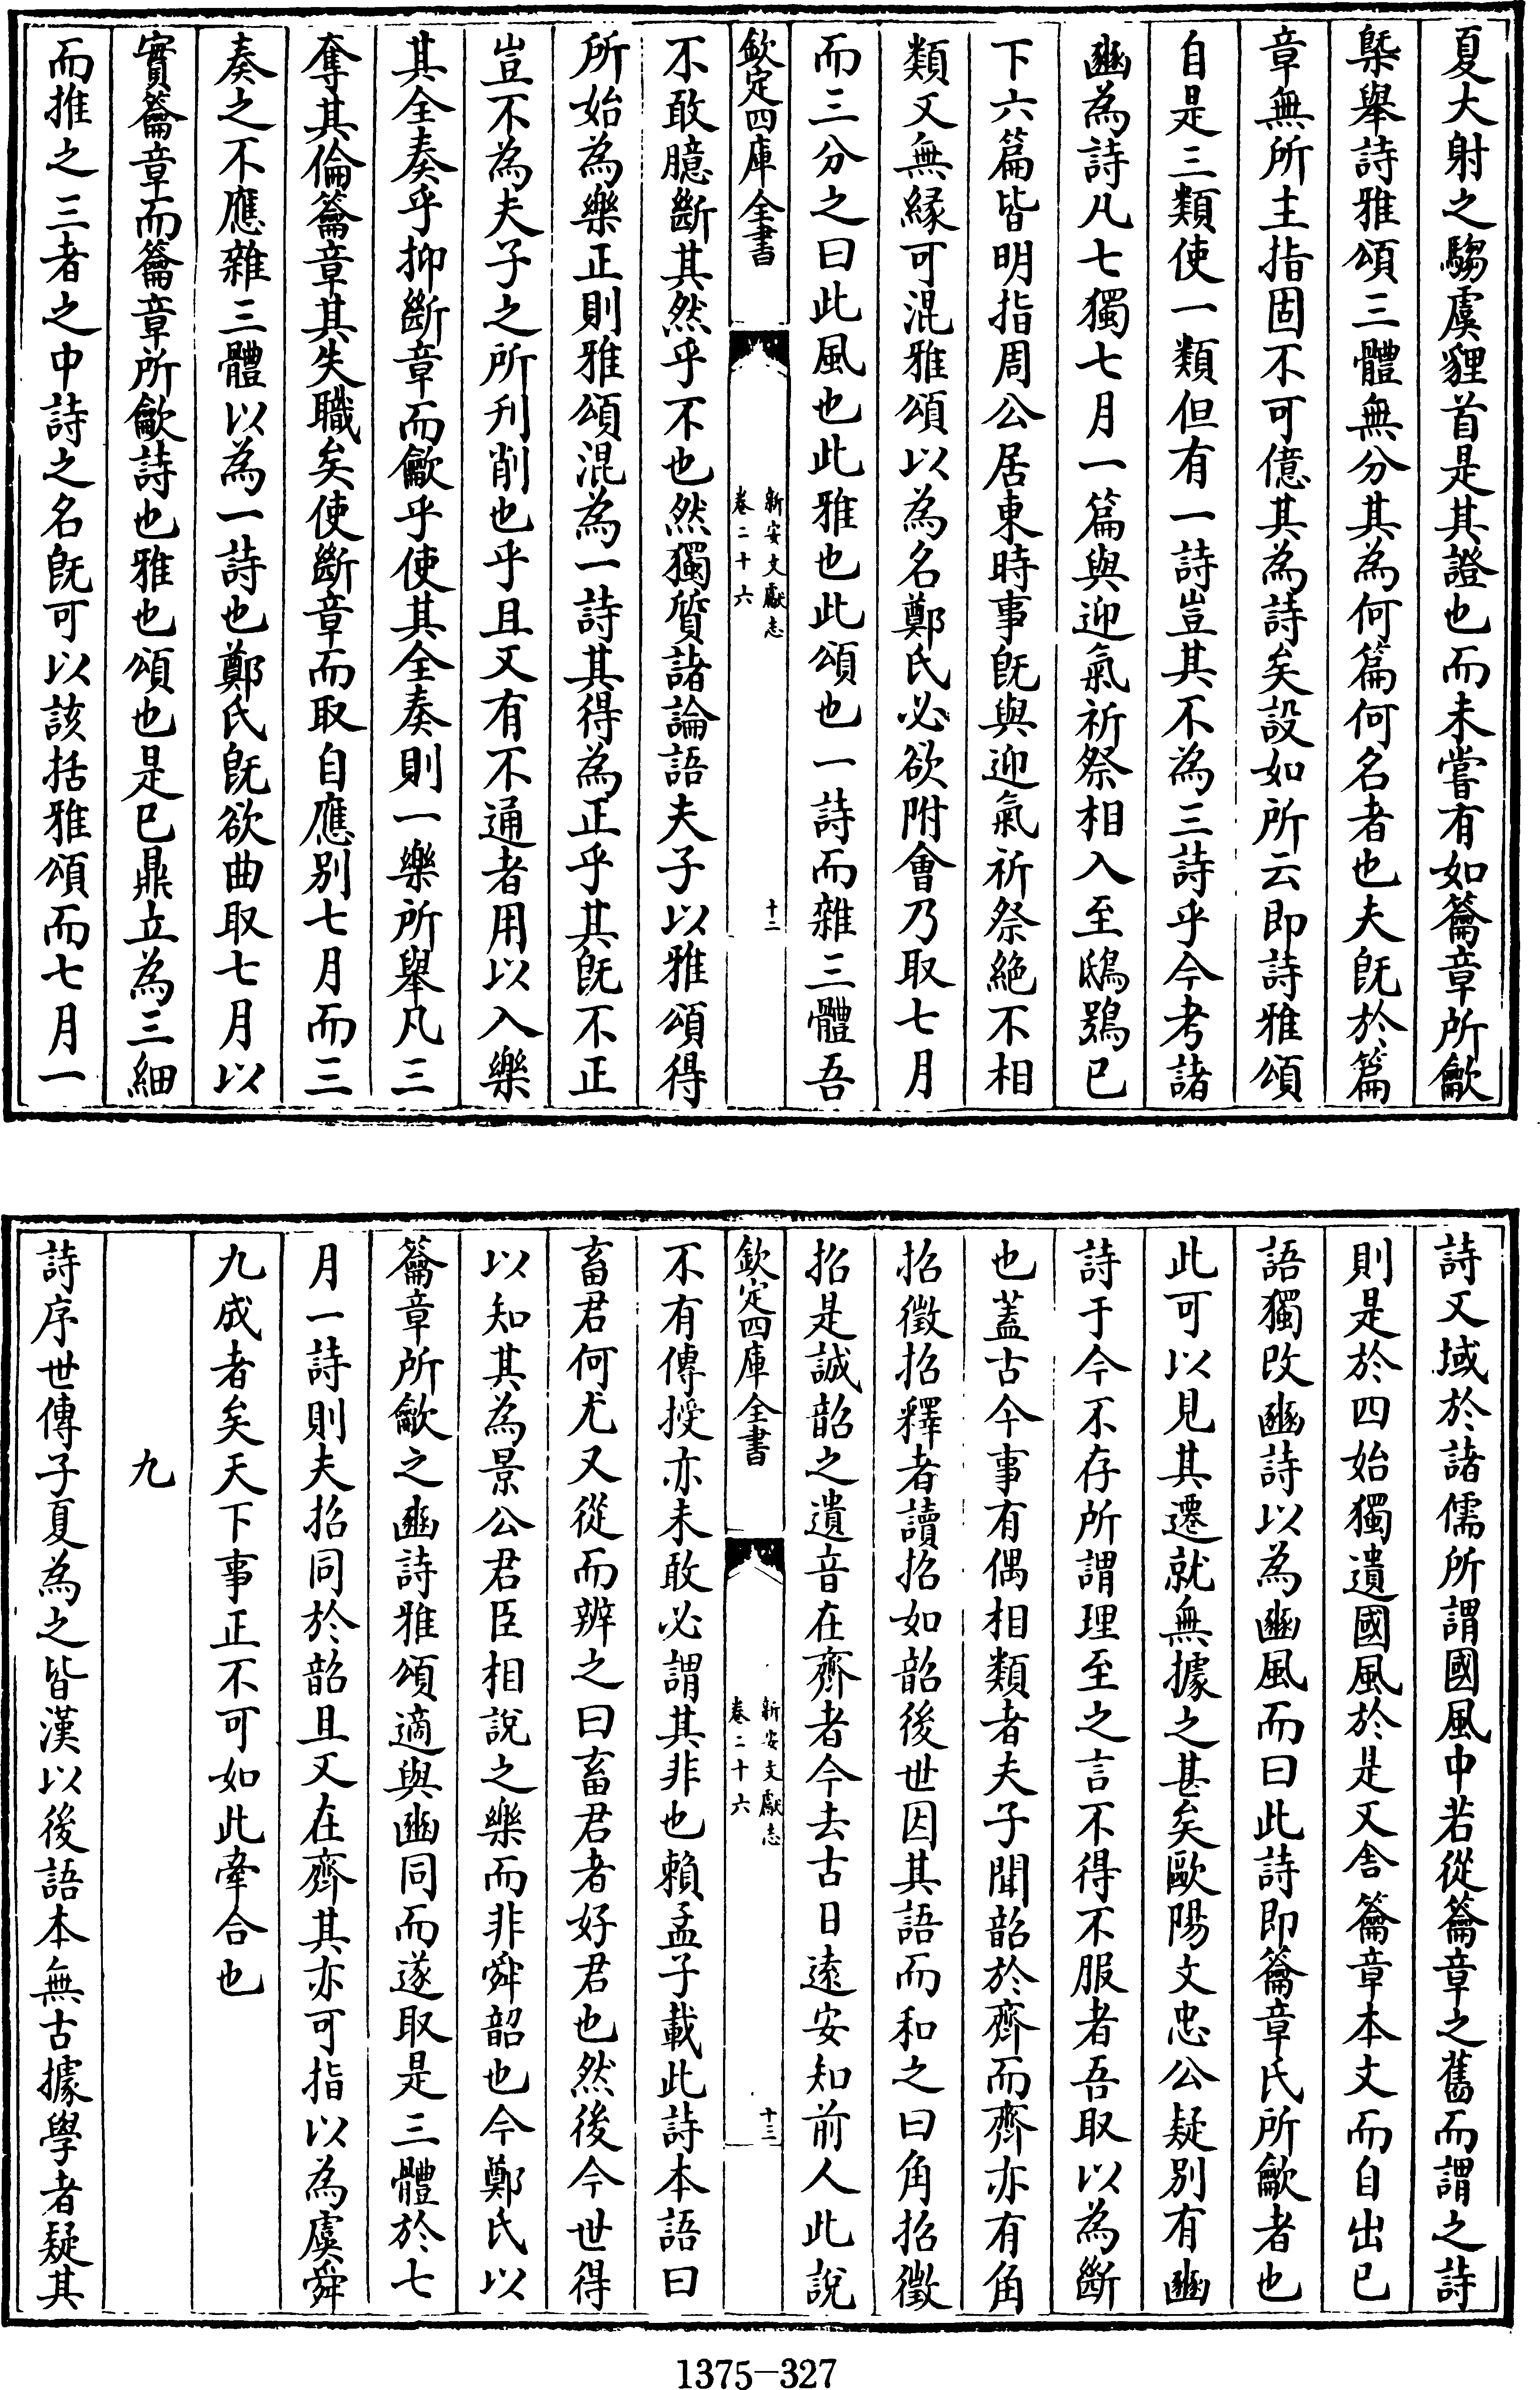 夏大射之騶虞貍首是其證也而未嘗有如籥章所龡
槩舉詩雅頌三體無分其為何篇何名者也夫旣於篇
章無所主指固不可億其為詩矣設如所云即詩雅頌
自是三類使一類但有一詩豈其不為三詩乎今考諸
豳為詩凡七獨七月一篇與迎氣祈祭相入至鴟鴞已
下六篇皆明指周公居東時事旣與迎氣祈祭絶不相
類又無緣可混雅頌以為名鄭氏必欲附會乃取七月
而三分之曰此風也此雅也此頌也一詩而雜三體吾
欽定四庫全書
新安文獻志
卷二十六
十二
不敢臆斷其然乎不也然獨質諸論語夫子以雅頌得
所始為樂正則雅頌混為一詩其得為正乎其旣不正
豈不為夫子之所刋削也乎且又有不通者用以入樂
其全奏乎抑斷章而龡乎使其全奏則一樂所舉凡三
奪其倫籥章其失職矣使斷章而取自應别七月而三
奏之不應雜三體以為一詩也鄭氏旣欲曲取七月以
實籥章而籥章所龡詩也雅也頌也是已鼎立為三細
而推之三者之中詩之名旣可以該括雅頌而七月一
詩又域於諸儒所謂國風中若從籥章之舊而謂之詩
則是於四始獨遺國風於是又舍籥章本文而自出已
語獨改豳詩以為豳風而曰此詩即籥章氏所龡者也
此可以見其遷就無據之甚矣歐陽文忠公疑别有豳
詩于今不存所謂理至之言不得不服者吾取以為斷
也蓋古今事有偶相類者夫子聞韶於齊而齊亦有角
招徵招釋者讀招如韶後世因其語而和之曰角招徵
招是誠韶之遺音在齊者今去古日逺安知前人此說
欽定四庫全書
新安文獻志
卷二十六
十三
不有傳授亦未敢必謂其非也賴孟子載此詩本語曰
畜君何尤又從而辨之曰畜君者好君也然後今世得
以知其為景公君臣相說之樂而非舜韶也今鄭氏以
籥章所龡之豳詩雅頌適與豳同而遂取是三體於七
月一詩則夫招同於韶且又在齊其亦可指以為虞舜
九成者矣天下事正不可如此牽合也
九
詩序世傳子夏為之皆漢以後語本無古據學者疑其
1375-327